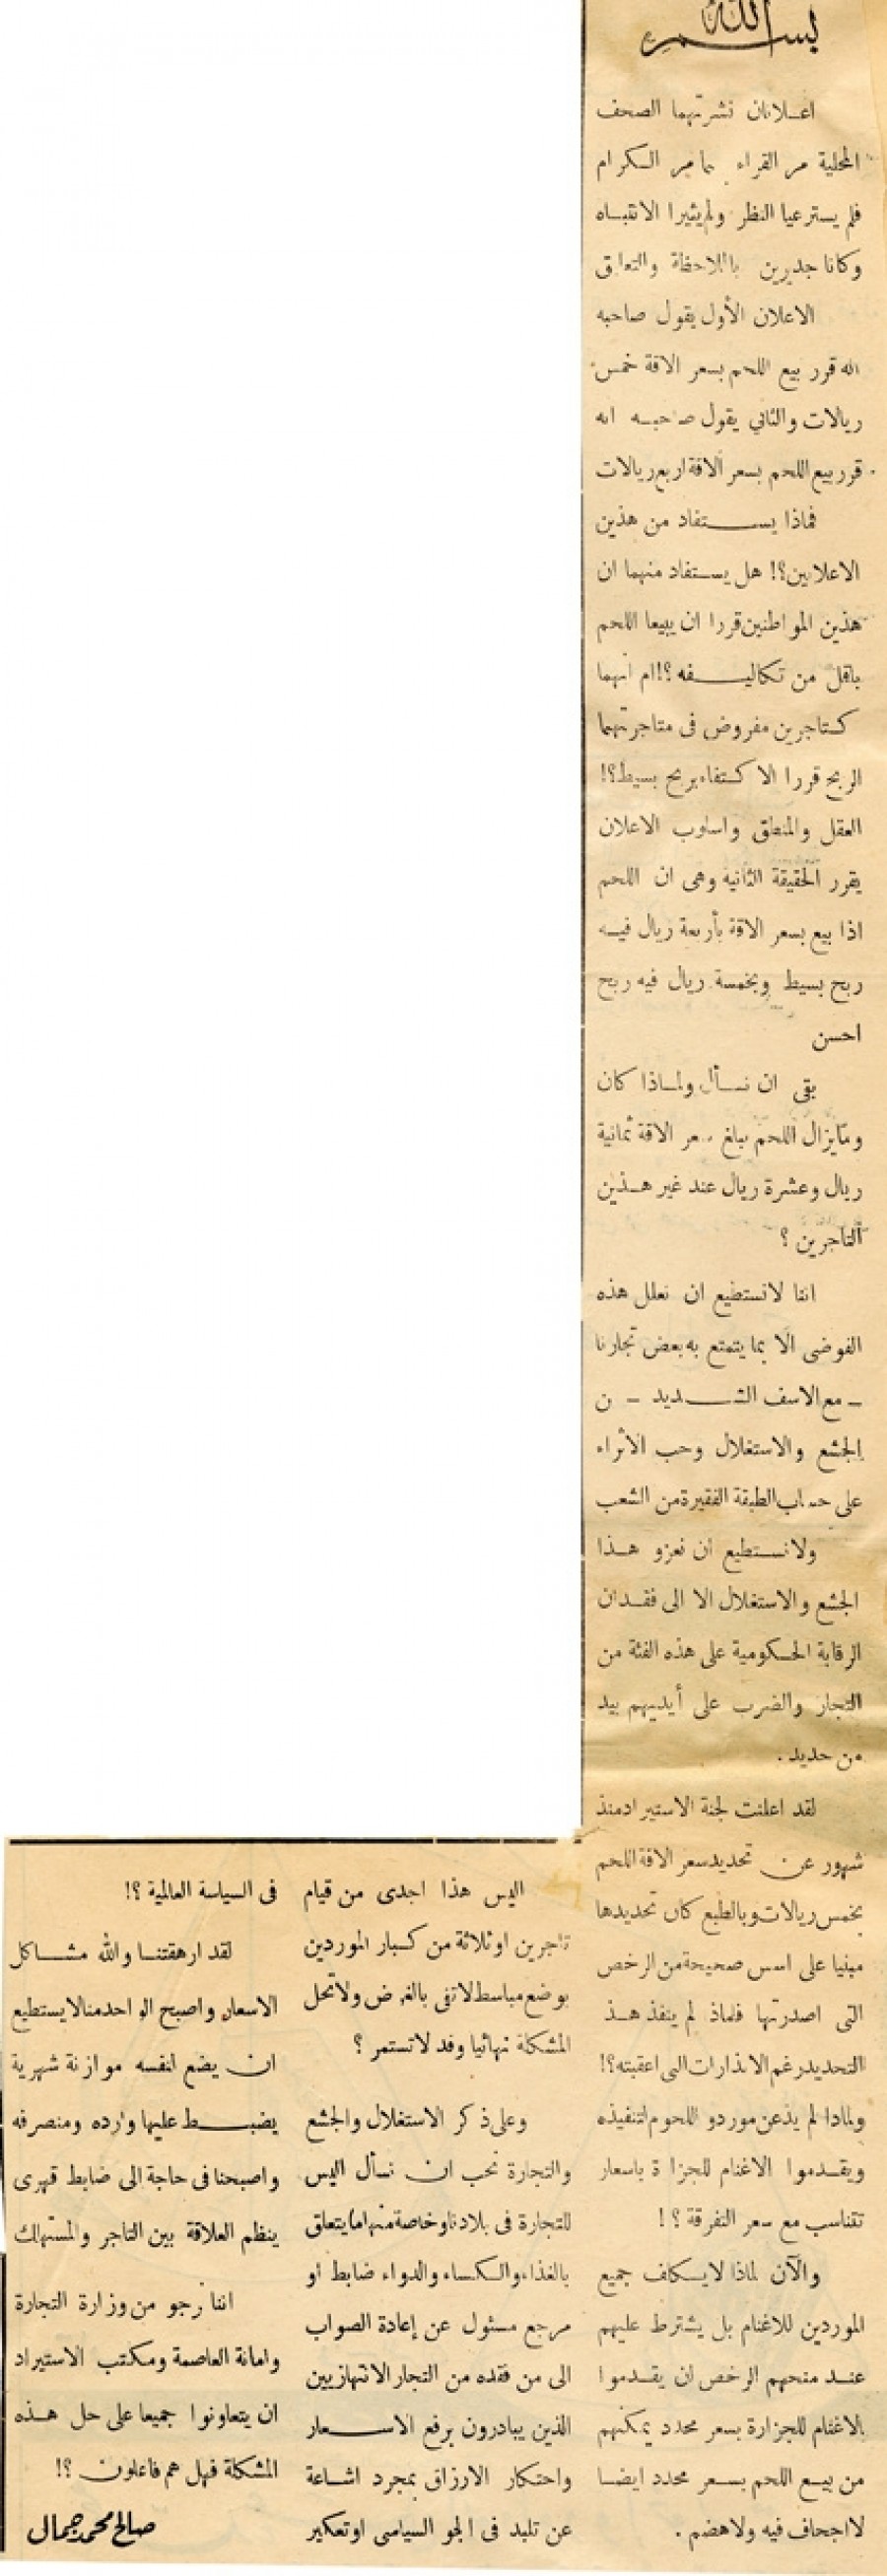 بسم الله
اعلانان نشرتهما الصحف
المحلية مر القراء بهما مر الكرام
فلم يسترعيا النظر ولم يثيرا الانتباه
وكانا جديرين بالملاحظة والتعليق
الاعلان الأول يقول صاحبه
انه قرر بيع اللحم بسعر الاقة خمس
ريالات والثاني يقول صاحبه انه
قرر بيع اللحم بسعر الاقة اربع ريالات
فماذا يستفاد من هذين
الاعلانين؟! هل يستفاد منهما ان
هذين المواطنين قررا ان يبيعا اللحم
باقل من تكاليفه ؟! ام انهما
كتاجرين مفروض فى متاجرتهما
الربح قررا الاكتفاء بربح بسيط؟!
العقل والمنطق واسلوب الاعلان
يقرر الحقيقة الثانية وهى ان اللحم
اذا بيع بسعر الاقة بأربعة ريال فيه
ربح بسيط وبخمسة ريال فيه ربح
احسن
بقى ان نسأل ولماذا كان
ومايزال اللحم يبلغ سعر الاقة ثمانية
ريال وعشرة ريال عند غير هذين
التاجرين ؟
اننا لانستطيع ان نعلل هذه
الفوضى الا بما يتمتع به بعض تجارنا
– مع الاسف الشديد – من
الجشع والاستغلال وحب الاثراء
على حساب الطبقة الفقيرة من الشعب
ولانستطيع ان نعزو هذا
الجشع والاستغلال الا الى فقدان
الرقابة الحكومية على هذه الفئة من
التجار والضرب على أيديهم بيد
من حديد .
لقد اعلنت لجنة الاستيراد منذ
شهور عن تحديد سعر الاقة اللحم
بخمس ريالات وبالطبع كان تحديدها
مبنيا على اسس صحيحة من الرخص
التى اصدرتها فلماذا لم ينفذ هذا
التحديد رغم الانذارات التى اعقبته؟!
ولماذا لم يذعن موردو اللحوم لتنفيذه
ويقدموا الاغنام للجزارة باسعار
تتناسب مع سعر التفرقة ؟ !
والآن لماذا لايكلف جميع
الموردين للاغنام بل يشترط عليهم
عند منحهم الرخص ان يقدموا
الاغنام للجزارة بسعر محدد يمكنهم
من بيع اللحم بسعر محدد ايضا
لااجحاف فيه ولاهضم .
اليس هذا اجدى من قيام
تاجرين او ثلاثة من كبار الموردين
بوضع مباسط لاتفى بالغرض ولاتحل
المشكلة نهائيا وقد لاتستمر ؟
وعلى ذكر الاستغلال والجشع
والتجارة نحب ان نسأل اليس
للتجارة فى بلادنا وخاصة منها ما يتعلق
بالغذاء والكساء والدواء ضابط او
مرجع مسئول عن إعادة الصواب
الى من فقده من التجار الانتهازيين
الذين يبادرون برفع الاسعار
واحتكار الارزاق بمجرد اشاعة
عن تلبد فى الجو السياسى او تعكير
فى السياسة العالمية ؟!
لقد ارهقتنا والله مشاكل
الاسعار واصبح الواحد منا لايستطيع
ان يضع لنفسه موازنة شهرية
يضبط عليها وارده ومنصرفه
واصبحنا فى حاجة الى ضابط قهرى
ينظم العلاقة بين التاجر والمستهلك
اننا نرجو من وزارة التجارة
وامانة العاصمة ومكتب الاستيراد
ان يتعاونوا جميعا على حل هذه
المشكلة فهل هم فاعلون ؟!
صالح محمد جمال